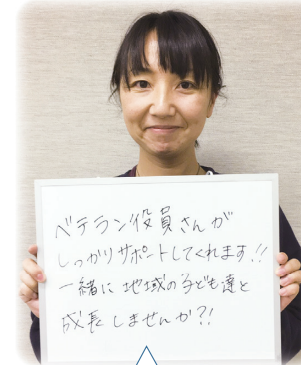 ベテラン役員さんが
しっかりサポートしてくれます!!
一緒に地域の子ども達と
成長しませんか?!